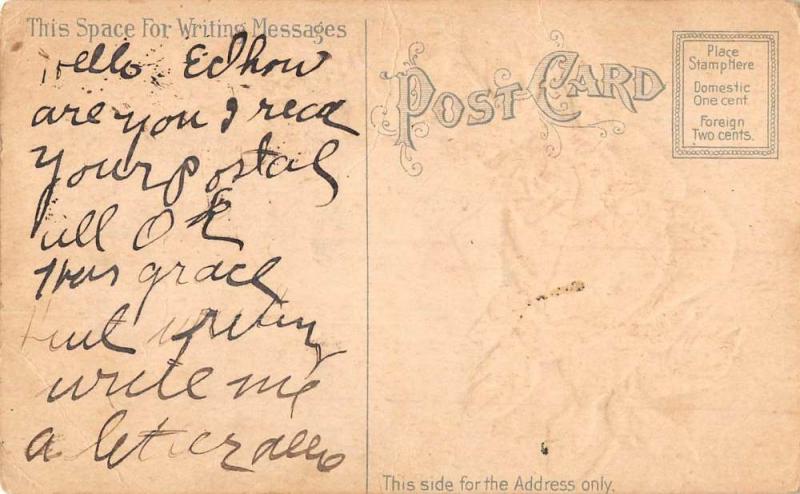 This Space For Writing Messages
Hello Ed how
are you I recd
your postal
all O K
Has grace
writing
write me
a letter
POST CARD
Place
Stamp Here
Domestic
One cent
Foreign
Two cents.
This side for the Address only.